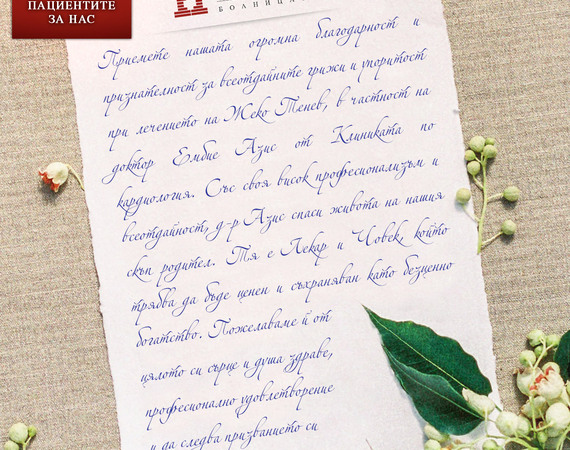 ПАЦИЕНТИТЕ
ЗА НАС
БОЛНИЦА
Приемете нашата огромна благодарност и
признателност за всеотдайните грижи и упоритост
при лечението на Жеко Тенев, в частност на
доктор Ембие Азис от Клиниката по
кардиология. Със своя висок професионализъм и
всеотдайност, д-р Азис спаси живота на нашия
скъп родител. Тя е Лекар и Човек, който
трябва да бъде ценен и съхраняван като безценно
богатство. Пожелаваме ѝ от
цялото си сърце и душа здраве,
професионално удовлетворение
и да следва призванието си